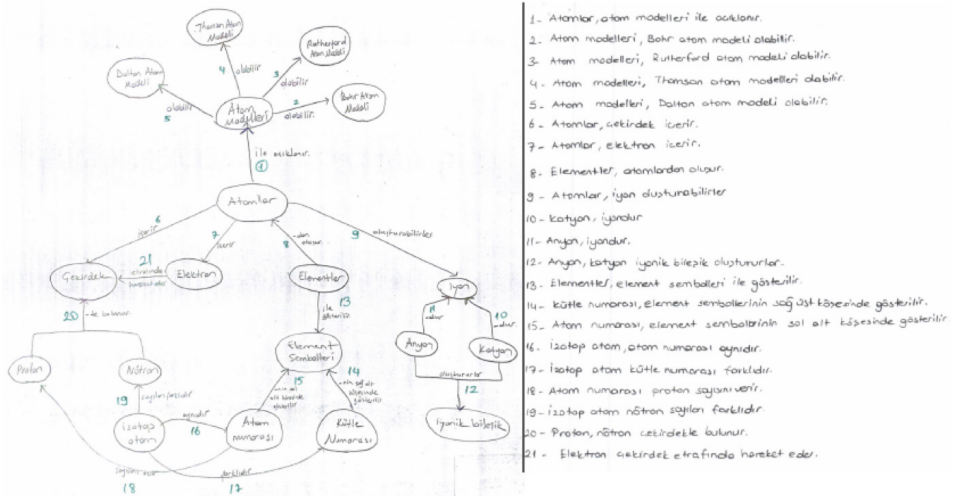 Thomson Atom
Modeli
Rutherford
Atom Modeli
Dalton Atom
Modeli
4 olabilir
3
olabilir
Bohr Atom
Modeli
olabilir
5
Atom
Modelleri
2
olabilir.
ile açıklanır.
1
Atomlar
6
içerir
7
içerir
8
-dan
oluşur.
9 oluşturabilirler
21
Çekirdek
etrafında
Elektron
Elementler
İyon
13
ile
gösterilir
20 -de bulunur
11
-udur
10
-udur.
Anyon
Katyon
Element
Sembolleri
Proton
Nötron
15
14
oluştururlar
12
19 sayıları farklıdır
İzotop
atom
aynıdır
16
Atom
numarası
Kütle
Numarası
İyonik bileşik
18
farklıdır
17
1- Atomlar, atom modelleri ile açıklanır.
2- Atom modelleri, Bohr atom modeli olabilir.
3- Atom modelleri, Rutherford atom modeli olabilir.
4- Atom modelleri, Thomson atom modelleri olabilir.
5- Atom modelleri, Dalton atom modeli olabilir.
6- Atomlar, çekirdek içerir.
7- Atomlar, elektron içerir.
8- Elementler, atomlardan oluşur.
9- Atomlar, iyon oluşturabilirler
10- Katyon, iyondur
11- Anyon, iyondur.
12- Anyon, katyon iyonik bileşik oluştururlar.
13- Elementler, element sembolleri ile gösterilir.
14- Kütle numarası, element sembollerinin sağ üst köşesinde gösterilir.
15- Atom numarası, element sembollerinin sol alt köşesinde gösterilir
16- İzotop atom, atom numarası aynıdır.
17- İzotop atom kütle numarası farklıdır.
18- Atom numarası proton sayısını verir.
19- İzotop atom nötron sayıları farklıdır.
20- Proton, nötron çekirdekte bulunur.
21- Elektron çekirdek etrafında hareket eder.